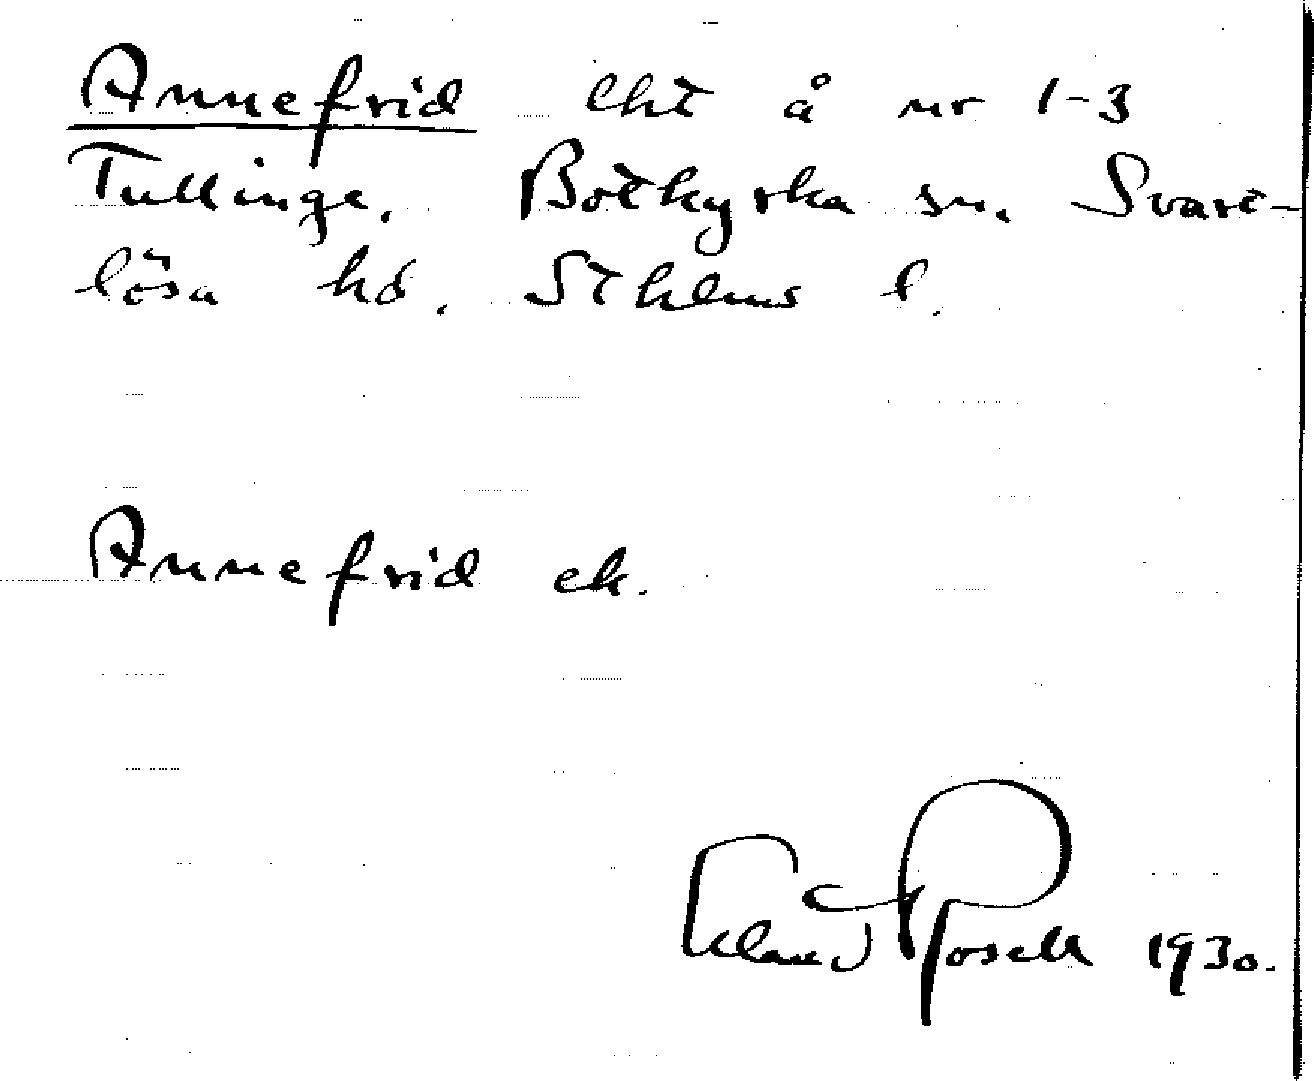 Annefrid lht å nr 1-3
Tullinge. Botkyrka sn. Svart-
lösa hd. Sthlms l.
Annefrid ek.
Rosell 1930.